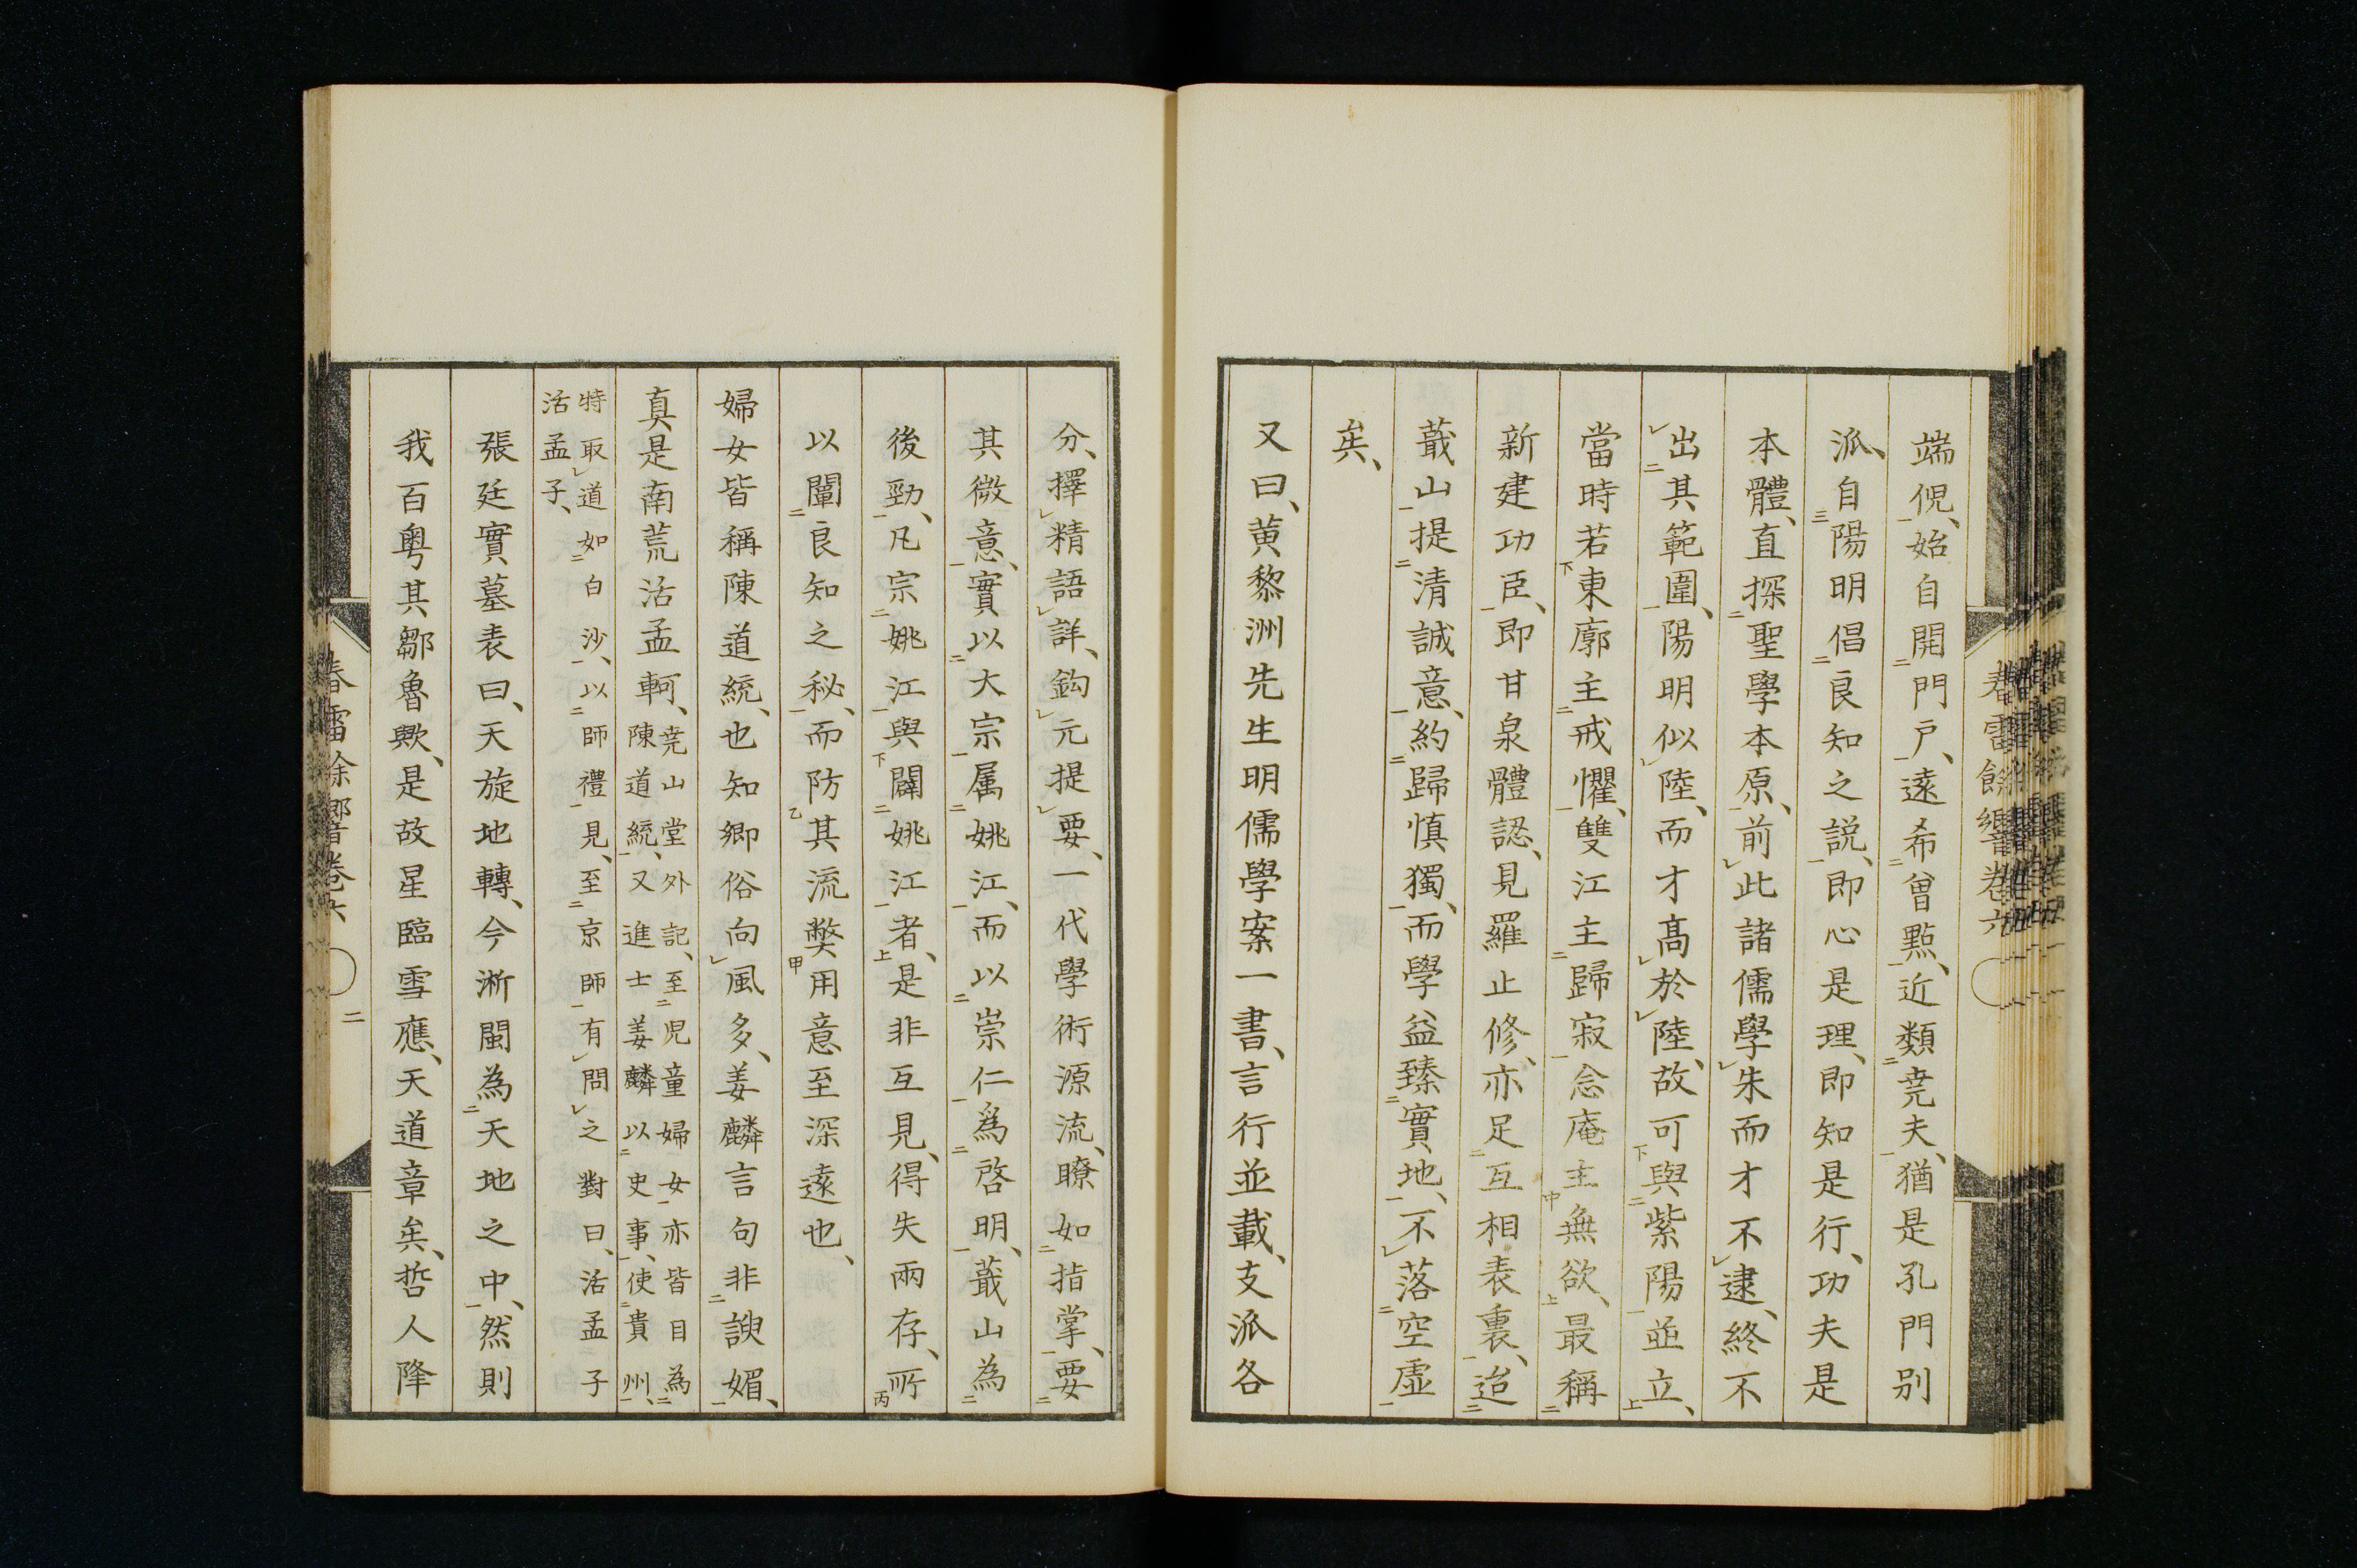 端倪、始自開門戶、遠希曾點、近類尭夫、猶是孔門別
派、自陽明倡良知之説、即心是理、即知是行、功夫是
本體、直探聖學本原、前此諸儒學朱而才不逮、終不
出其範圍、陽明似陸、而才髙於陸、故可與紫陽並立、
當時若東廓主戒懼、雙江主歸寂念庵主無欲、最稱
新建功臣、即甘泉體認、見羅止修、亦足互相表裏、迨
蕺山提清誠意、約歸慎獨、而學益臻實地、不落空虛
矣、
又曰、黃黎洲先生明儒學案一書、言行並載、支派各
分、擇精語詳、鈎元提要、一代學術源流、瞭如指掌、要
其微意、實以大宗属姚江、而以崇仁爲啓明、蕺山為
後勁、凡宗姚江與闢姚江者、是非互見、得失兩存、所
以闡良知之秘、而防其流弊用意至深遠也、
婦女皆稱陳道統、也知鄉俗向風多、姜麟言句非諛媚、
真是南荒活孟軻、尭山堂外記、至児童婦女亦皆目為
陳道統、又進士姜麟以史事、使貴州、
特取道如白沙、以師禮見、至京師有問之對曰、活孟子
活孟子、
張廷實墓表曰、天旋地轉、今淅閩為天地之中、然則
我百粤其鄒魯歟、是故星臨雪應、天道章矣、哲人降
春雷餘響卷六
春雷餘響卷六 二